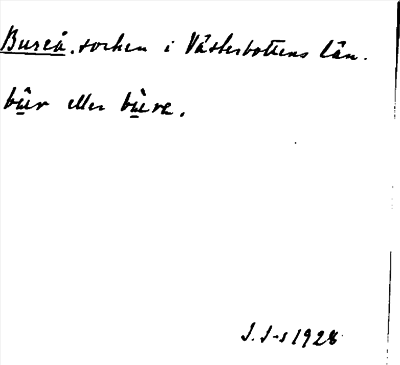 Bureå, socken i Västerbottens län.
bûr eller bùre.
J. J-s 1928